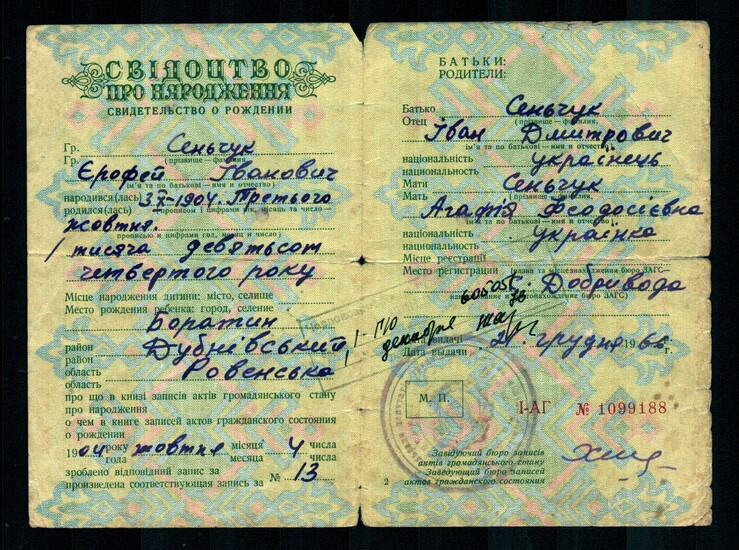 СВІДОЦТВО
ПРО НАРОДЖЕННЯ
СВИДЕТЕЛЬСТВО О РОЖДЕНИИ
Гр. Сеньчук
Гр. (прізвище — фамилия)
Єрофей Іванович
(ім'я та по батькові — имя и отчество)
народився(лась) 3/X-1904. Третього
родился(лась) прописом і цифрами рік, місяць та число —
жовтня.
прописью и цифрами год, месяц и число)
тисяча девятьсот
четвертого року
Місце народження дитини: місто, селище
Место рождения ребенка: город, селение
Боратин
район Дубнівський
район
область Ровенська
область
про що в книзі записів актів громадянського стану
про народження
о чем в книге записей актов гражданского состояния
о рождении
1904 року жовтня місяця 4 числа
года месяца числа
зроблено відповідний запис за № 13
произведена соответствующая запись за
БАТЬКИ:
РОДИТЕЛИ:
Батько Сеньчук
Отец (прізвище — фамилия,
Іван Дмитрович
ім'я та по батькові — имя и отчество)
національність українець
национальность
Мати Сеньчук
Мать (прізвище — фамилия,
Агафія Феодосієвна
ім'я та по батькові — имя и отчество)
національність українка
национальность
Місце реєстрації
Место регистрации (назва та місцезнаходження бюро ЗАГС—
Добривода
наименование и местонахождение бюро ЗАГС)
декабря
Дата видачі 21 грудня 1966 г.
Дата выдачи
М. П.
І-АГ № 1099188
Завідуючий бюро записів
актів громадянського стану
Заведующий бюро записей
2 актов гражданского состояния